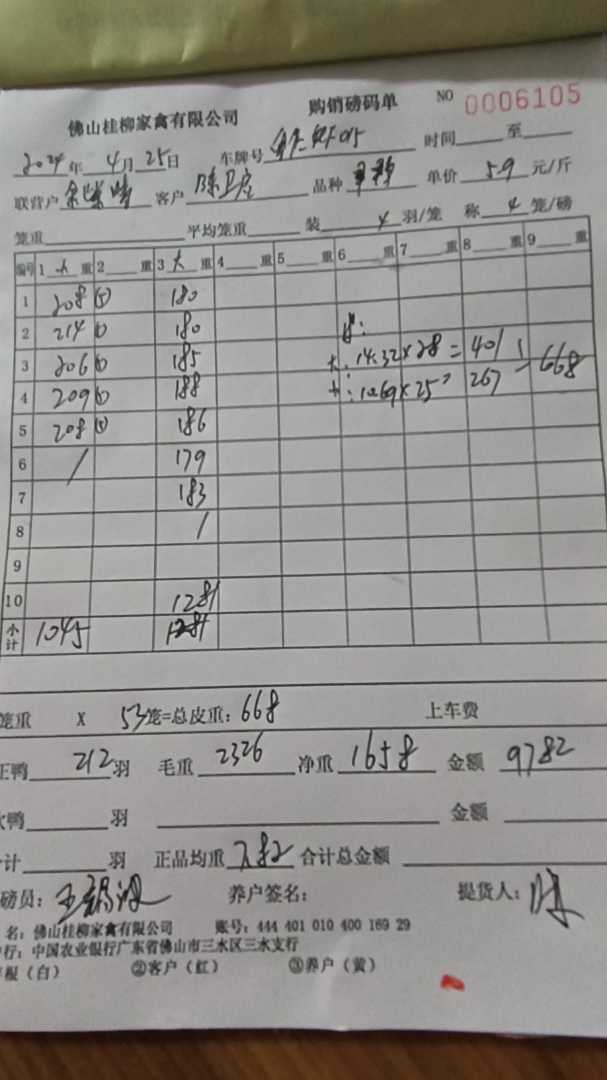 佛山桂柳家禽有限公司 购销磅码单 NO 0006105
2024年 4月 25日 车牌号 时间 至
联营户 客户 陈卫 品种 单价 5.9 元/斤
笼重 平均笼重 装 4 羽/笼 称 4 笼/磅
编号 1 大 重 2 重 3 大 重 4 重 5 重 6 重 7 重 8 重 9 重
1 208 (5) 180
2 214 (5) 180
3 206 (5) 185 大: 14.32×28 = 401
4 209 (5) 188 10.69×25 = 267 668
5 208 (5) 186
6 / 179
7 183
8 /
9
10 1281
小计 1045 1281
笼重 X 53笼=总皮重: 668 上车费
正鸭 212 羽 毛重 2326 净重 1658 金额 9782
次鸭 羽 金额
计 羽 正品均重 7.82 合计总金额
磅员: 养户签名: 提货人: 陈
名: 佛山桂柳家禽有限公司 账号: 444 401 010 400 169 29
行: 中国农业银行广东省佛山市三水区三水支行
根(白) ②客户(红) ③养户(黄)